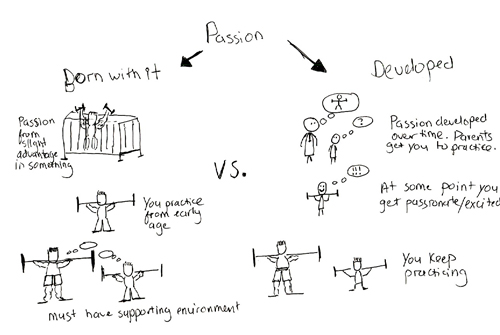 Passion
Born with it
Passion
from
slight
advantage
in something
You practice
from early
age
must have supporting environment
VS.
Developed
?
Passion developed
over time. Parents
get you to practice.
!!!
At some point you
get passionate/excited
You keep
practicing